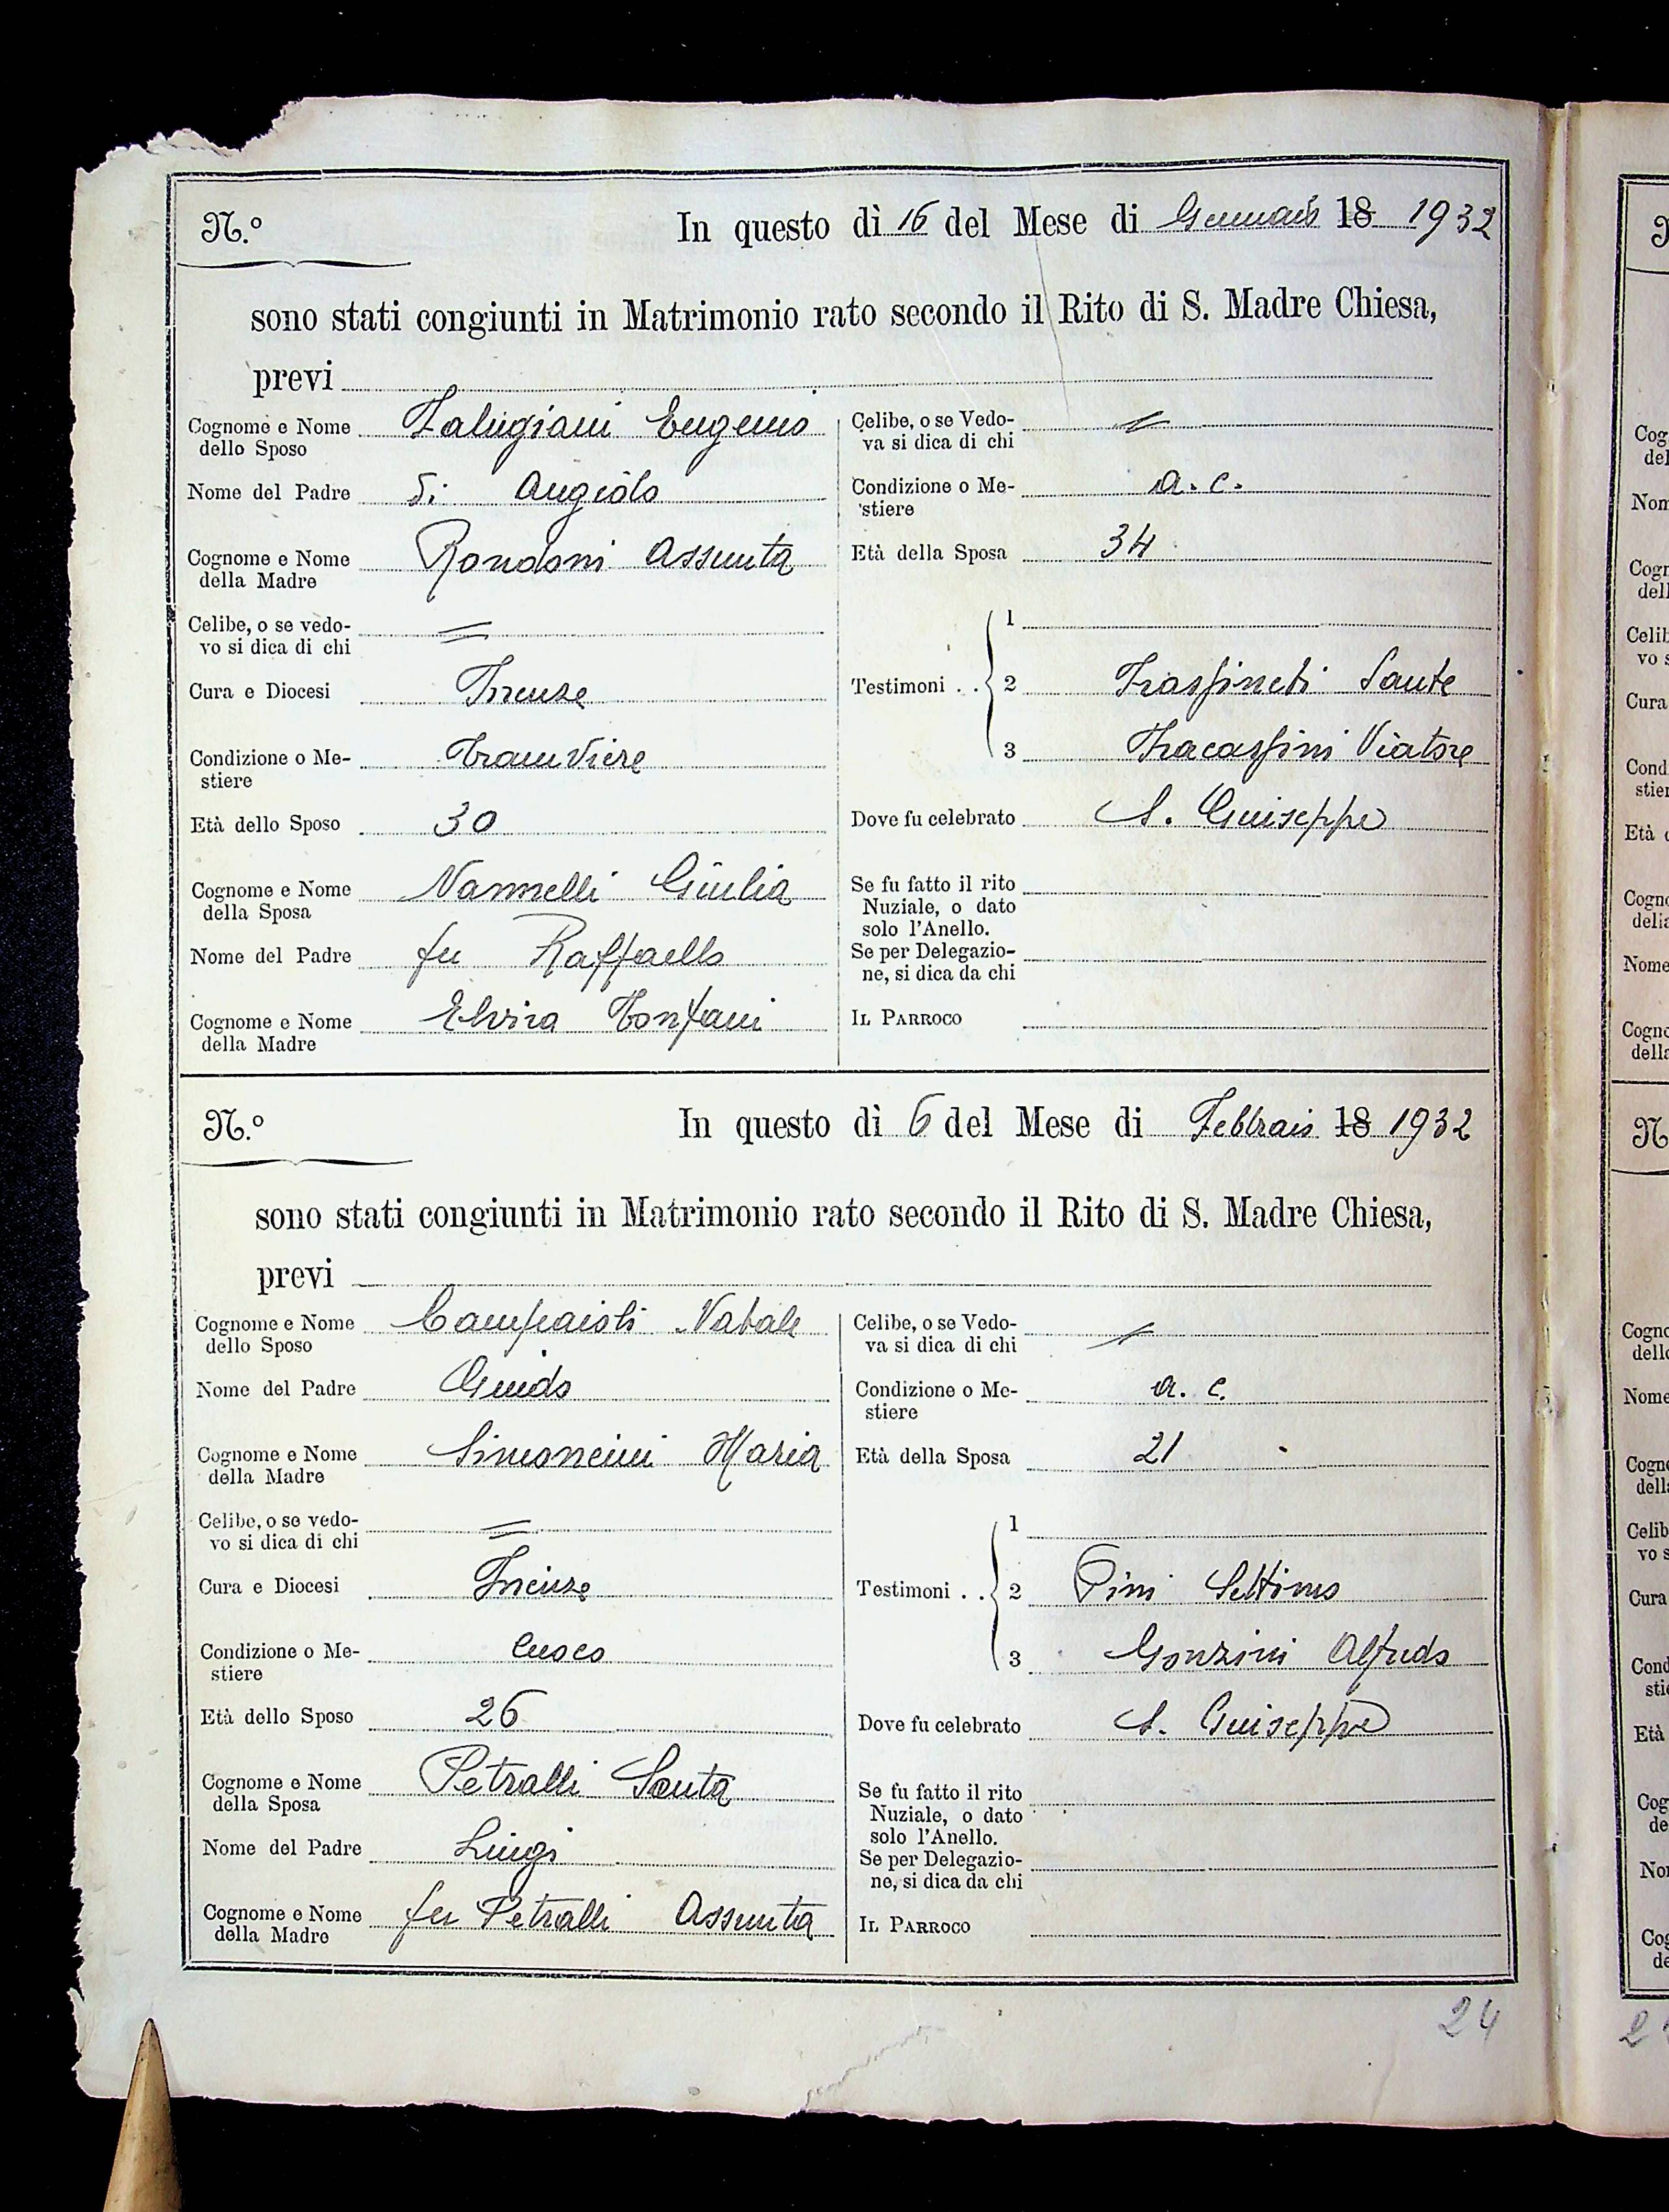 N.º In questo dì 16 del Mese di Gennaio 18 1932
sono stati congiunti in Matrimonio rato secondo il Rito di S. Madre Chiesa,
previ
Cognome e Nome Falugiani Eugenio
dello Sposo
Nome del Padre di Angiolo
Cognome e Nome Rondoni Assunta
della Madre
Celibe, o se vedo- =
vo si dica di chi
Cura e Diocesi Firenze
Condizione o Me- Tramviere
stiere
Età dello Sposo 30
Cognome e Nome Nannelli Giulia
della Sposa
Nome del Padre fu Raffaello
Cognome e Nome Elvira Tonfani
della Madre
Celibe, o se Vedo- =
va si dica di chi
Condizione o Me- a. c.
stiere
Età della Sposa 34
1
Testimoni . . 2 Frassineti Sante
3 Fracassini Viatore
Dove fu celebrato S. Giuseppe
Se fu fatto il rito
Nuziale, o dato
solo l'Anello.
Se per Delegazio-
ne, si dica da chi
Il Parroco
N.º In questo dì 6 del Mese di Febbraio 18 1932
sono stati congiunti in Matrimonio rato secondo il Rito di S. Madre Chiesa,
previ
Cognome e Nome Campaioli Natale
dello Sposo
Nome del Padre Guido
Cognome e Nome Simoncini Maria
della Madre
Celibe, o se vedo- =
vo si dica di chi
Cura e Diocesi Firenze
Condizione o Me- Cuoco
stiere
Età dello Sposo 26
Cognome e Nome Petralli Santa
della Sposa
Nome del Padre Luigi
Cognome e Nome fu Petralli Assunta
della Madre
Celibe, o se Vedo- =
va si dica di chi
Condizione o Me- a. c.
stiere
Età della Sposa 21
1
Testimoni . . 2 Pini Settimo
3 Gonzini Alfredo
Dove fu celebrato S. Giuseppe
Se fu fatto il rito
Nuziale, o dato
solo l'Anello.
Se per Delegazio-
ne, si dica da chi
Il Parroco
24